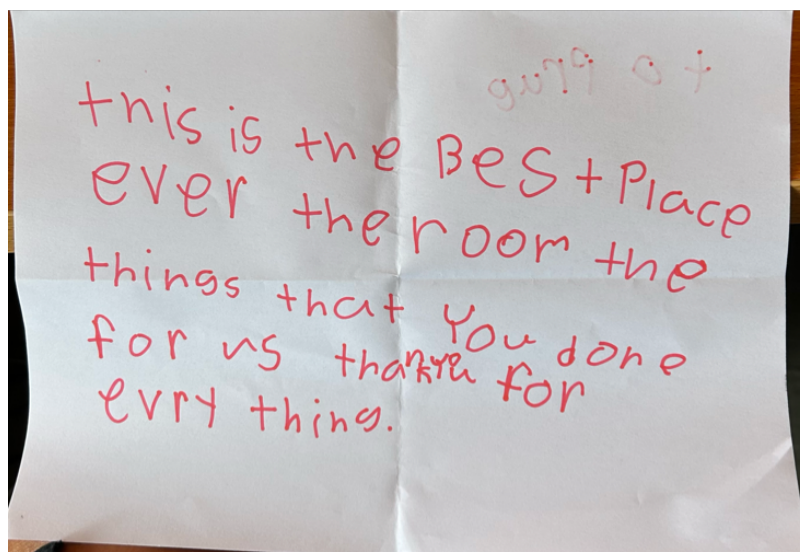 this is the Best Place
ever the room the
things that You done
for us thankyu for
evry thing.